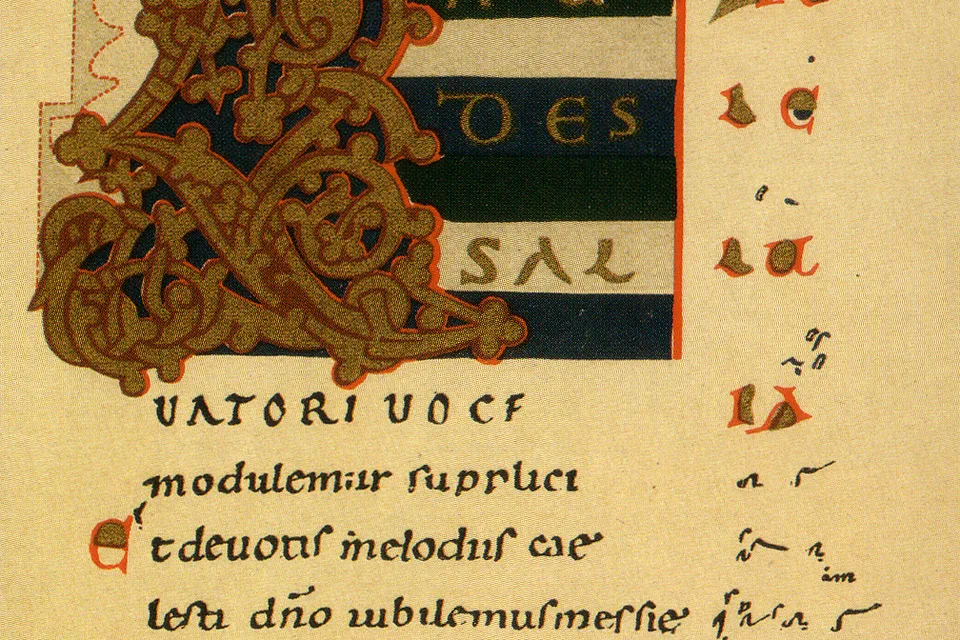 DES
LE
SAL
UATORI UOCE
IA
modulemur supplici
Et deuotis melodiis cae
lesti dño iubilemus messie